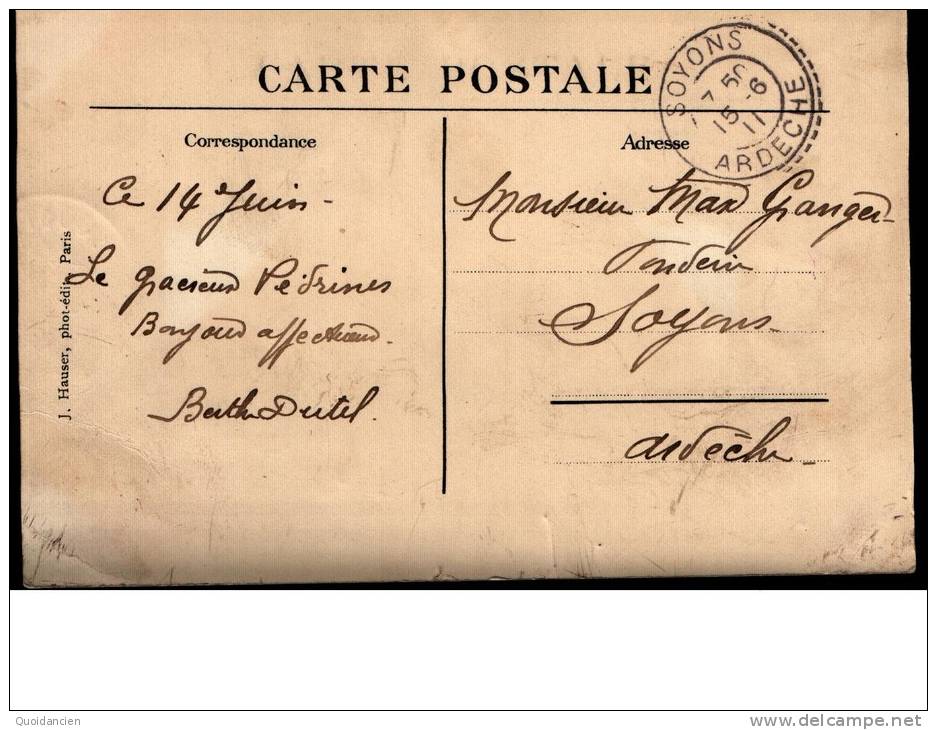 CARTE POSTALE
SOYONS
7 50
15 -6
11
ARDECHE
Correspondance
Adresse
Ce 14 Juin -
Le gracieux Védrines
Bonjour affectueux.
Berthe Dutel.
Monsieur Max Granger
Soyons.
Ardèche -
J. Hauser, phot-édit, Paris
Quoidancien
www.delcampe.net